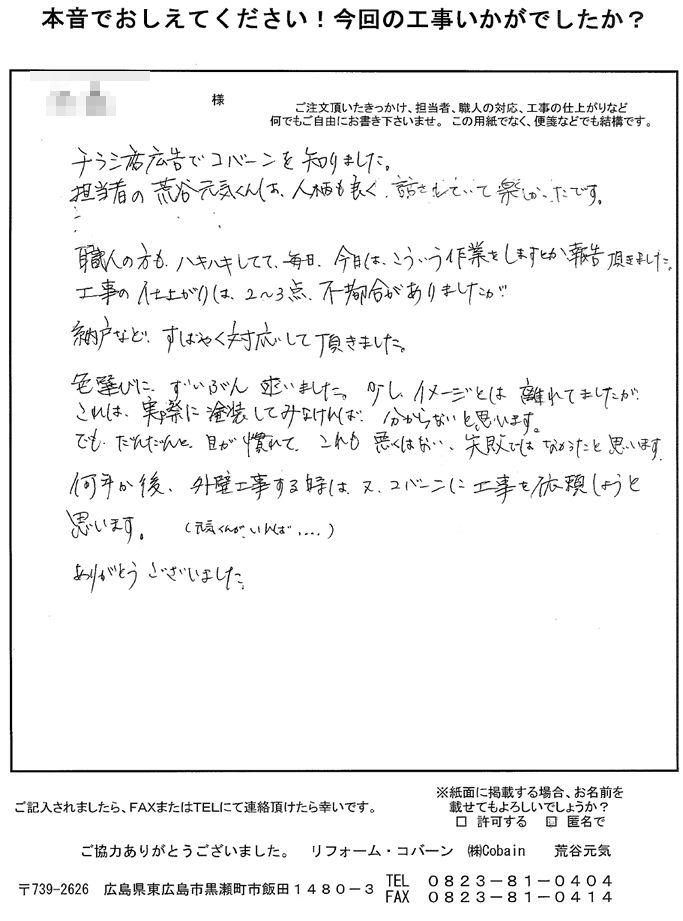 本音でおしえてください！今回の工事いかがでしたか？
様
ご注文頂いたきっかけ、担当者、職人の対応、工事の仕上がりなど
何でもご自由にお書き下さいませ。この用紙でなく、便箋などでも結構です。
チラシ広告でコバーンを知りました。
担当者の荒谷元気くんは、人柄も良く、話されていて楽しかったです。
職人の方も、ハキハキしてて、毎日、今日は、こういう作業をしますとか報告頂きました。
工事の仕上がりは、2～3点、不都合がありましたが
納戸など、すばやく対応して頂きました。
色選びに、ずいぶん迷いました。少し、イメージとは離れてましたが
これは、実際に塗装してみなければ、分からないと思います。
でも、だんだんと、目が慣れて、これも悪くはない、失敗ではなかったと思います
何年か後、外壁工事する時は、又、コバーンに工事を依頼しようと
思います。（元気くんが、いれば、....）
ありがとうございました。
ご記入されましたら、FAXまたはTELにて連絡頂けたら幸いです。
※紙面に掲載する場合、お名前を
載せてもよろしいでしょうか？
□ 許可する ☑ 匿名で
ご協力ありがとうございました。 リフォーム・コバーン ㈱Cobain 荒谷元気
〒739-2626 広島県東広島市黒瀬町市飯田１４８０－３ TEL ０８２３－８１－０４０４
FAX ０８２３－８１－０４１４